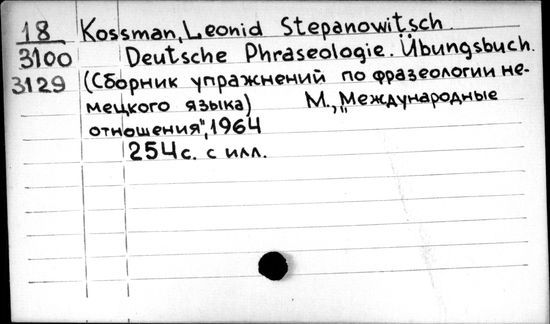 18 Kossman, Leonid Stepanowitsch
3100 Deutsche Phraseologie. Übungsbuch.
3129 (Сборник упражнений по фразеологии не-
мецкого языка) М., „Международные
отношения", 1964
254 с. с илл.